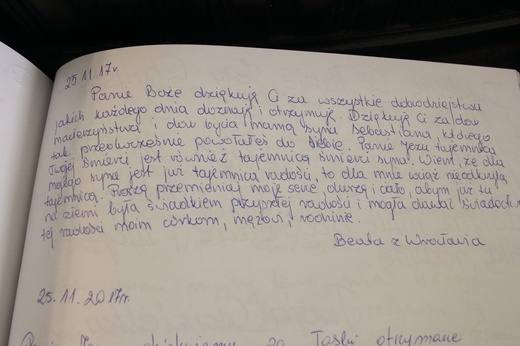 25.11.17r.
Panie Boże dziękuję Ci za wszystkie dobrodziejstwa
jakich każdego dnia doznaję i otrzymuję. Dziękuję Ci za dar
macierzyństwa i dar bycia mamą syna Sebastiana, którego
tak przedwcześnie powołałeś do Siebie. Panie Jezu tajemnica
Twojej śmierci jest również tajemnicą śmierci syna. Wiem, że dla
mojego syna jest już tajemnicą radości, to dla mnie wciąż nieodkrytą
tajemnicą. Proszę przemieniaj moje serce, duszę i ciało, abym już tu
na ziemi była świadkiem przyszłej radości i mogła dawać świadectwo
tej radości moim córkom, mężowi, rodzinie.
Beata z Wrocławia
25.11.2017r.
dziękujemy za łaski otrzymane